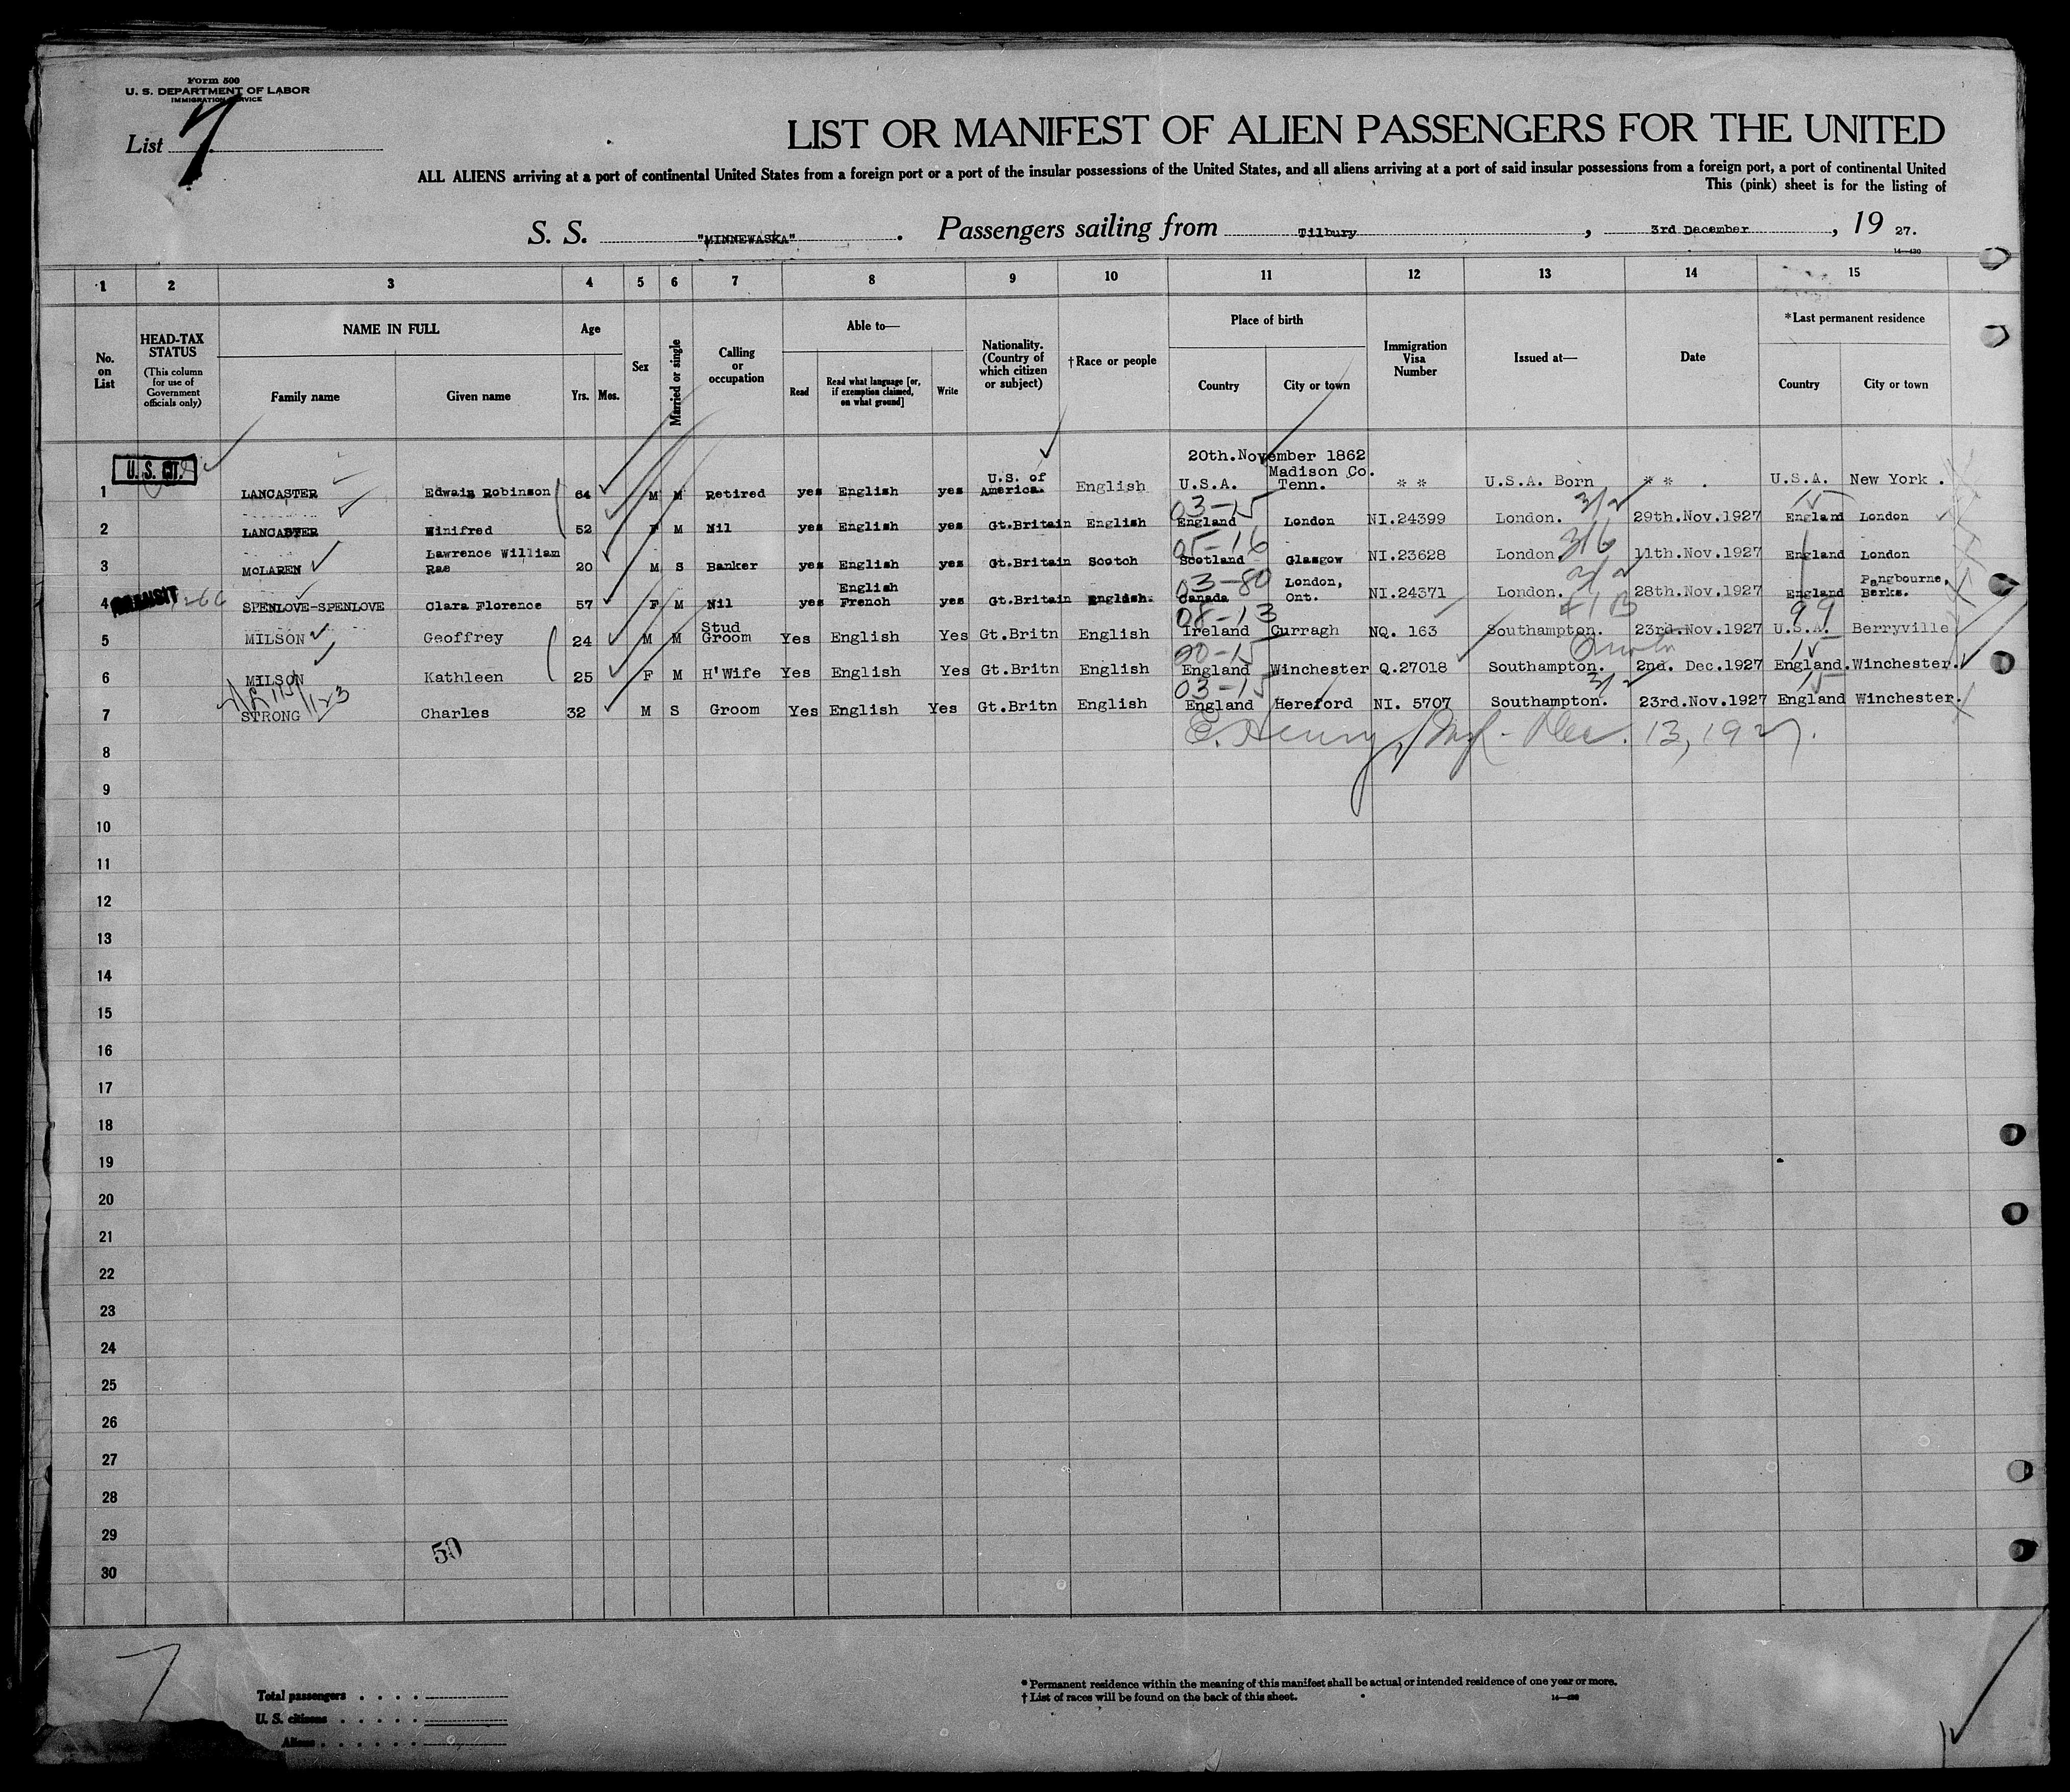 Form 500
U. S. DEPARTMENT OF LABOR
IMMIGRATION SERVICE
List 7
LIST OR MANIFEST OF ALIEN PASSENGERS FOR THE UNITED
ALL ALIENS arriving at a port of continental United States from a foreign port or a port of the insular possessions of the United States, and all aliens arriving at a port of said insular possessions from a foreign port, a port of continental United
This (pink) sheet is for the listing of
S. S. "MINNEWASKA". Passengers sailing from Tilbury, 3rd December, 19 27.
14—430
1 2 3 4 5 6 7 8 9 10 11 12 13 14 15
No. on List
HEAD-TAX STATUS (This column for use of Government officials only)
NAME IN FULL
Family name Given name
Age
Yrs. Mos.
Sex
Married or single
Calling or occupation
Able to—
Read
Read what language [or, if exemption claimed, on what ground]
Write
Nationality. (Country of which citizen or subject)
†Race or people
Place of birth
Country City or town
Immigration Visa Number
Issued at—
Date
*Last permanent residence
Country City or town
U. S. CIT.
20th.November 1862
1 LANCASTER Edwain Robinson 64 M M Retired yes English yes U.S. of America. English U.S.A. Madison Co. Tenn. * * U.S.A. Born * * U.S.A. New York .
03-15 3/2
2 LANCASTER Winifred 52 F M Nil yes English yes Gt.Britain English England London NI.24399 London. 29th.Nov.1927 England London
05-16 3/6
3 McLAREN Lawrence William Rae 20 M S Banker yes English yes Gt.Britain Scotch Scotland Glasgow NI.23628 London 11th.Nov.1927 England London
TRANSIT 03-80 3/2
4 SPENLOVE-SPENLOVE Clara Florence 57 F M Nil yes English French yes Gt.Britain English. Canada London, Ont. NI.24371 London. 28th.Nov.1927 England Pangbourne, Berks.
08-13 99
5 MILSON Geoffrey 24 M M Stud Groom Yes English Yes Gt.Britn English Ireland Curragh NQ. 163 Southampton. 23rd.Nov.1927 U.S.A. Berryville
00-15 15
6 MILSON Kathleen 25 F M H'Wife Yes English Yes Gt.Britn English England Winchester Q.27018 Southampton. 2nd. Dec.1927 England. Winchester.
03-15 3/2 15
7 STRONG Charles 32 M S Groom Yes English Yes Gt.Britn English England Hereford NI. 5707 Southampton. 23rd.Nov.1927 England Winchester.
E. Henry, Dec. 13, 1927.
8
9
10
11
12
13
14
15
16
17
18
19
20
21
22
23
24
25
26
27
28
29
50
30
7
Total passengers . . . .
U. S. citizens . . . . .
Aliens . . . . . .
* Permanent residence within the meaning of this manifest shall be actual or intended residence of one year or more.
† List of races will be found on the back of this sheet. 14—430